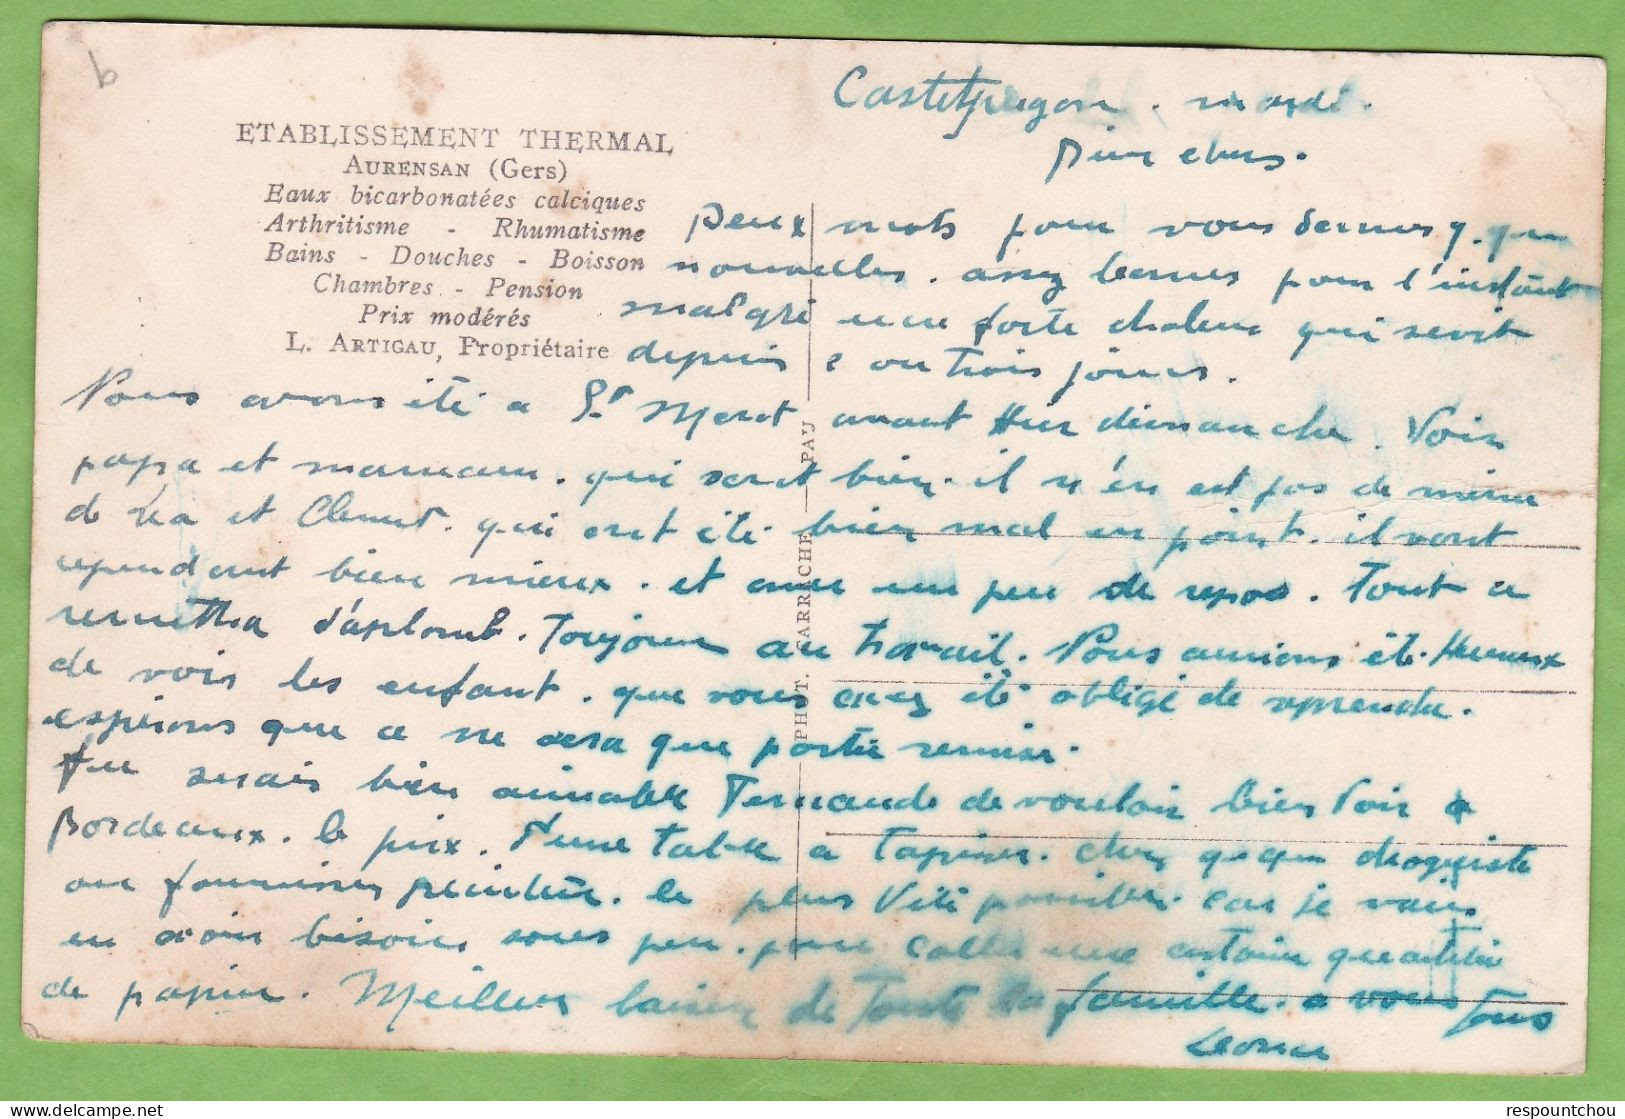 b
ETABLISSEMENT THERMAL
AURENSAN (Gers)
Eaux bicarbonatées calciques
Arthritisme - Rhumatisme
Bains - Douches - Boisson
Chambres - Pension
Prix modérés
L. ARTIGAU, Propriétaire
PHOT. CARRACHE PAU
Castetpugon. mardi.
Bien chers.
Deux mots pour vous donner q. que
nouvelles. assez bonnes pour l'instant
malgré une forte chaleur qui sevit
depuis 2 ou trois jours.
Nous avons été a St Mont avant Hier dimanche. Voir
papa et maman. qui sont bien. il n'en est pas de même
de Léa et Clement. qui ont été bien mal en point. il vont
cependant bien mieux. et avec un peu de repos. Tout ce
remettra d'aplomb. Toujours au travail. Nous aurions été Heureux
de voir les enfant. que vous avez été obligé de reprendre.
espérons que ce ne sera que partie remise.
Tu serais bien aimable Fernande de vouloir bien Voir a
Bordeaux. le prix. d'une table a tapisser. chez quque droguiste
ou fournisseur peinture. le plus Vite possible. car je vais
en avoir besoin sous peu. pour coller une certaine quantitée
de papier. Meilleurs baisers de Toute la famille. a vous Tous
Leonce
respountchou